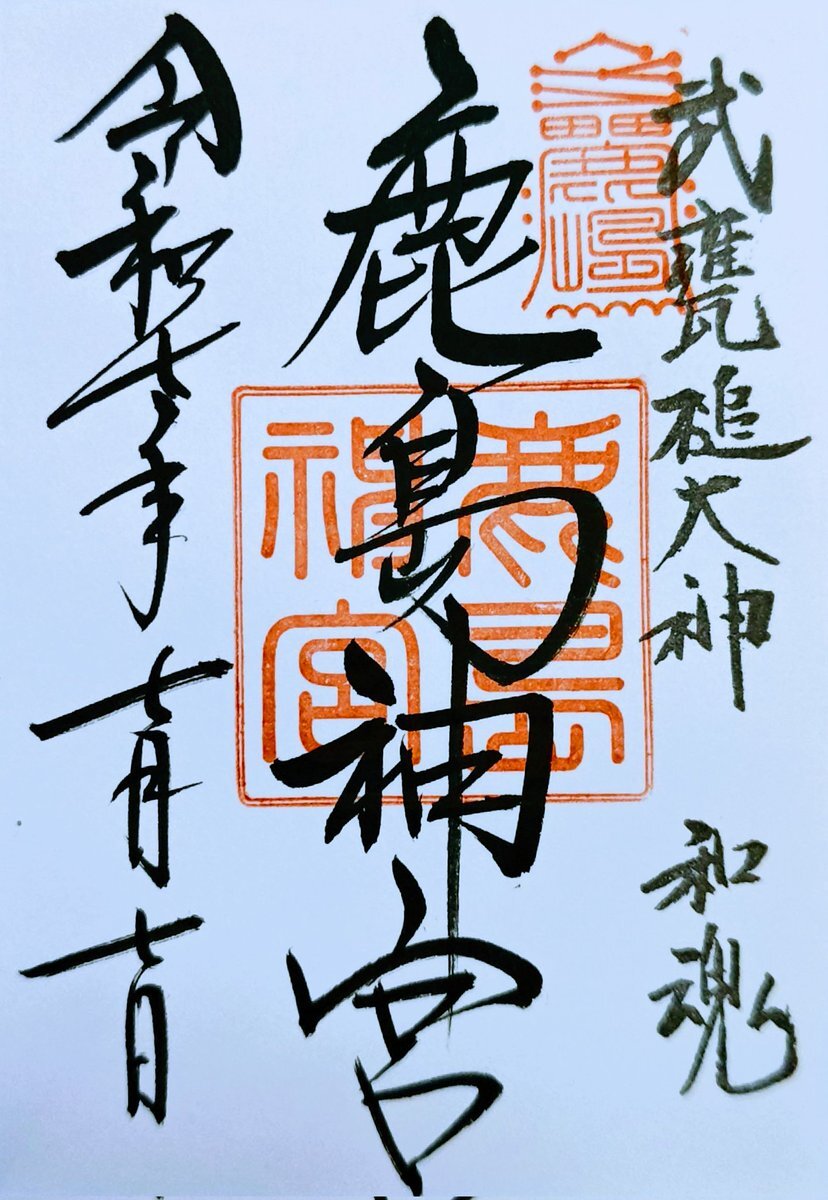 武甕槌大神 和魂
鹿島神宮
鹿島神宮
令和七年七月七日